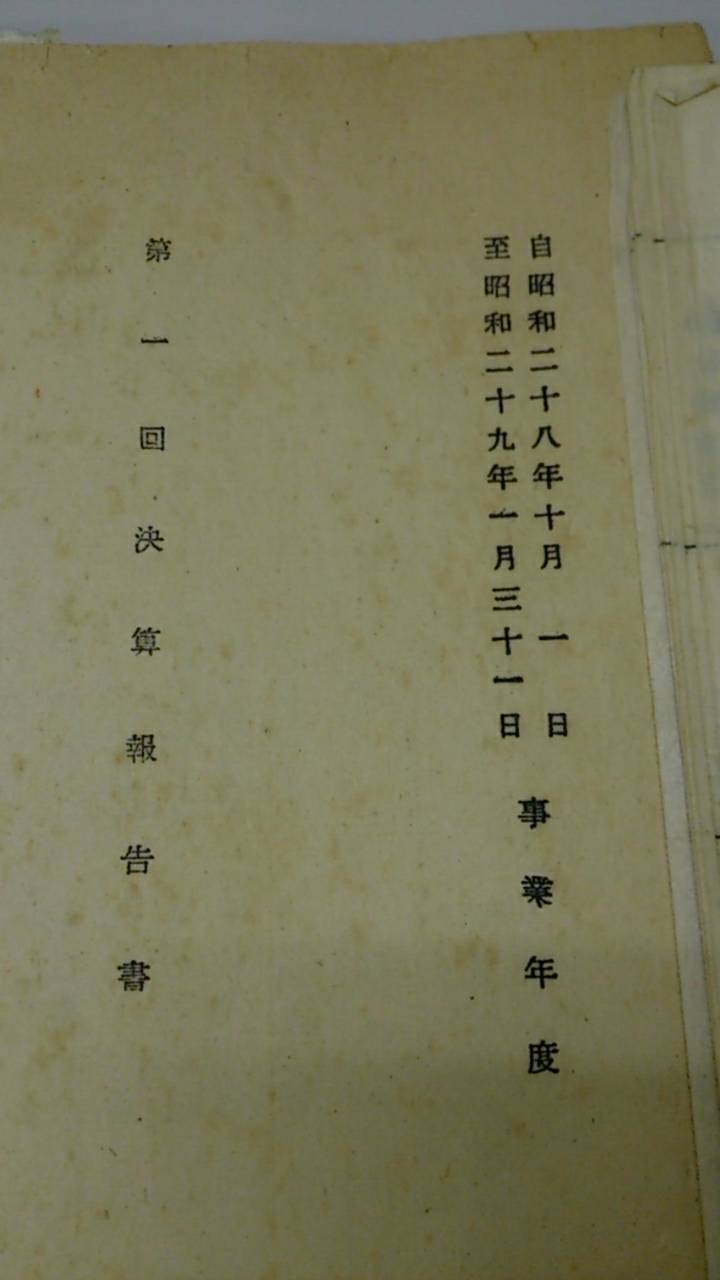 自昭和二十八年十月一日
至昭和二十九年一月三十一日
事業年度
第一回決算報告書